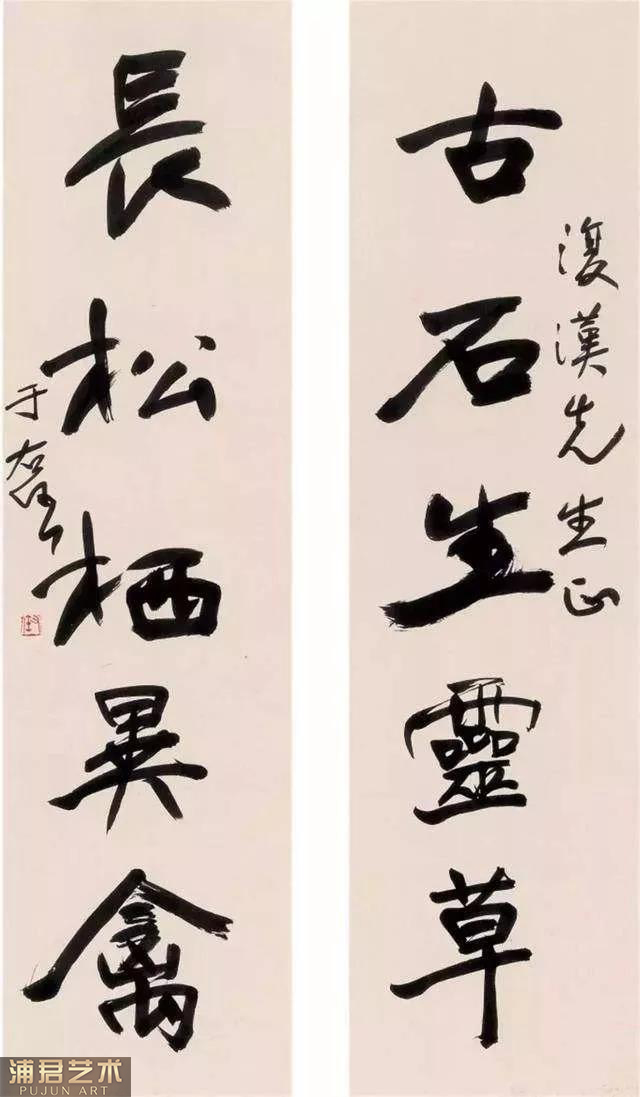 復漢先生正
古石生靈草
長松栖異禽
于右任
浦君艺术
PUJUN ART